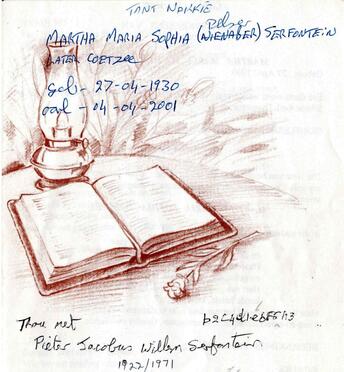 TANT NAKKIE
Pelser
MARTHA MARIA SOPHIA (NIENABER) SERFONTEIN
LATER COETZEE
geb - 27-04-1930
oorl - 04-04-2001
Trou met
Pieter Jacobus Willem Serfontein
1922/1971